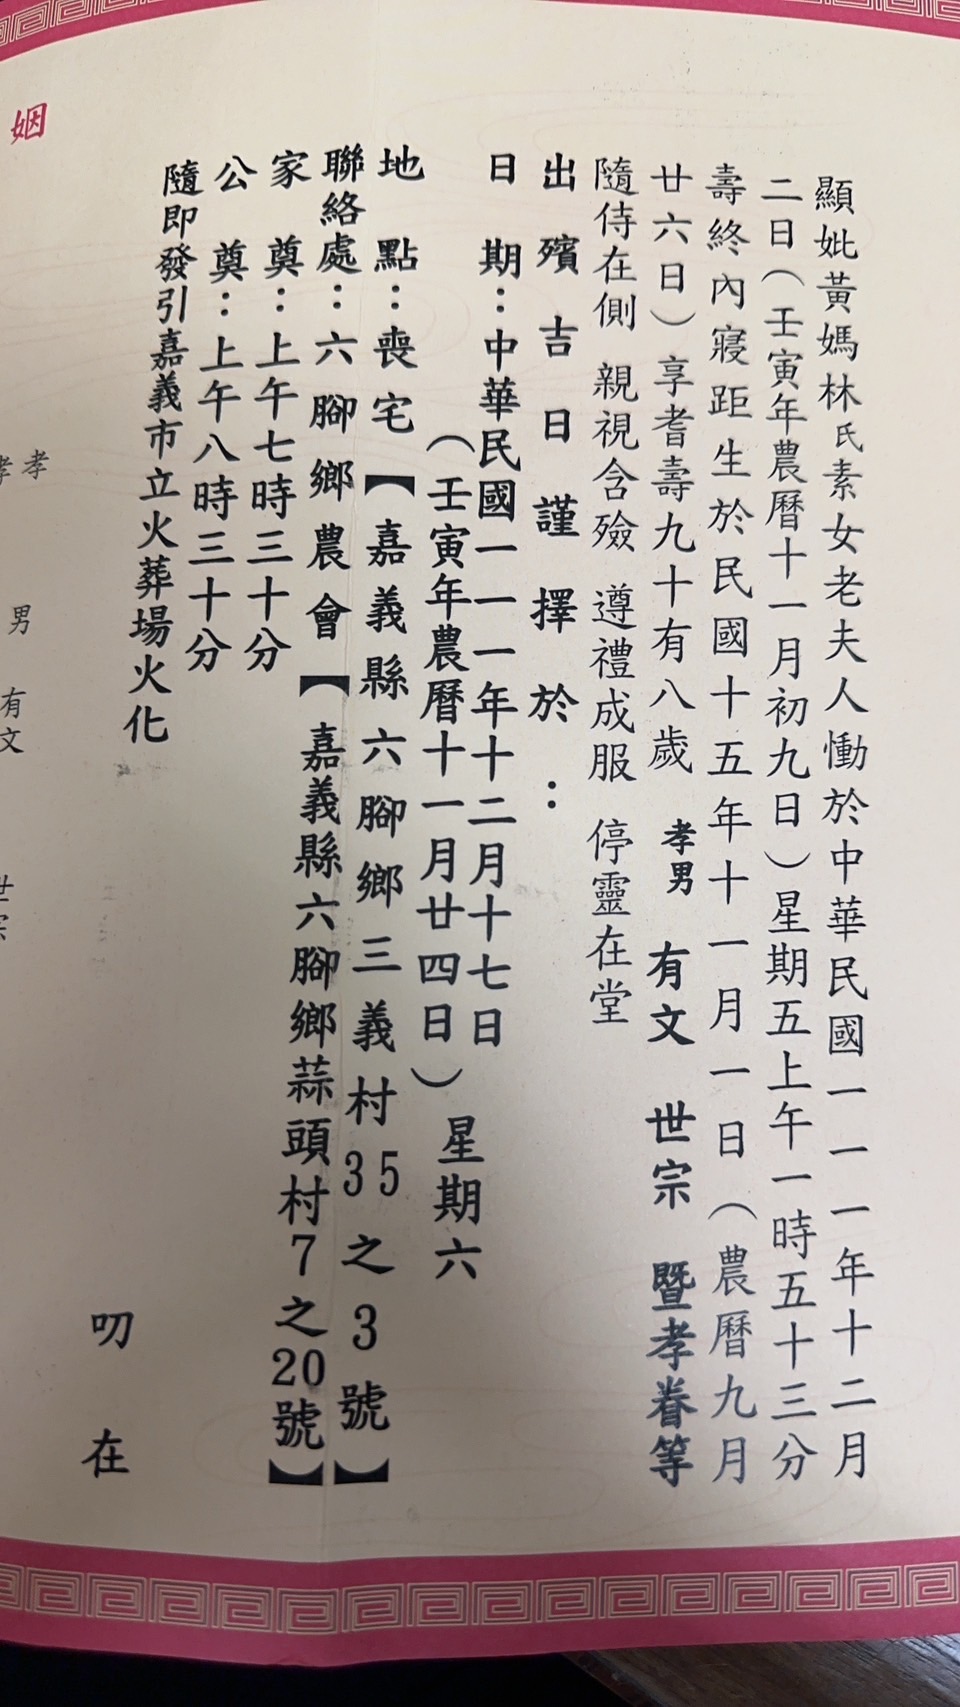 顯妣黃媽林氏素女老夫人慟於中華民國一一一年十二月
二日（壬寅年農曆十一月初九日）星期五上午一時五十三分
壽終內寢距生於民國十五年十一月一日（農曆九月
廿六日）享耆壽九十有八歲 孝男 有文 世宗 暨孝眷等
隨侍在側 親視含殮 遵禮成服 停靈在堂
出殯吉日謹擇於：
日期：中華民國一一一年十二月十七日
（壬寅年農曆十一月廿四日）星期六
地點：喪宅【嘉義縣六腳鄉三義村35之3號】
聯絡處：六腳鄉農會【嘉義縣六腳鄉蒜頭村7之20號】
家奠：上午七時三十分
公奠：上午八時三十分
隨即發引嘉義市立火葬場火化
叨在
姻
孝
男
有文